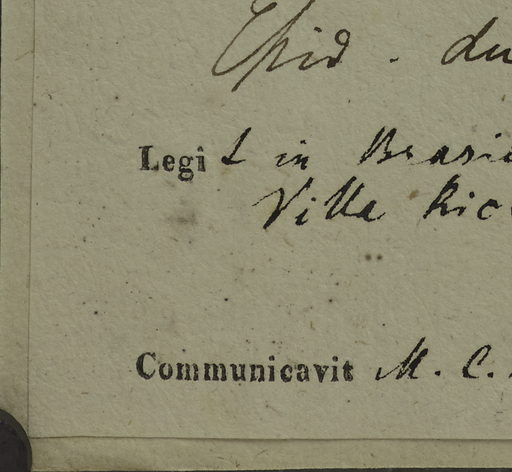 Epid. du
Legit in Brasi
Villa Ric
Communicavit M. C.